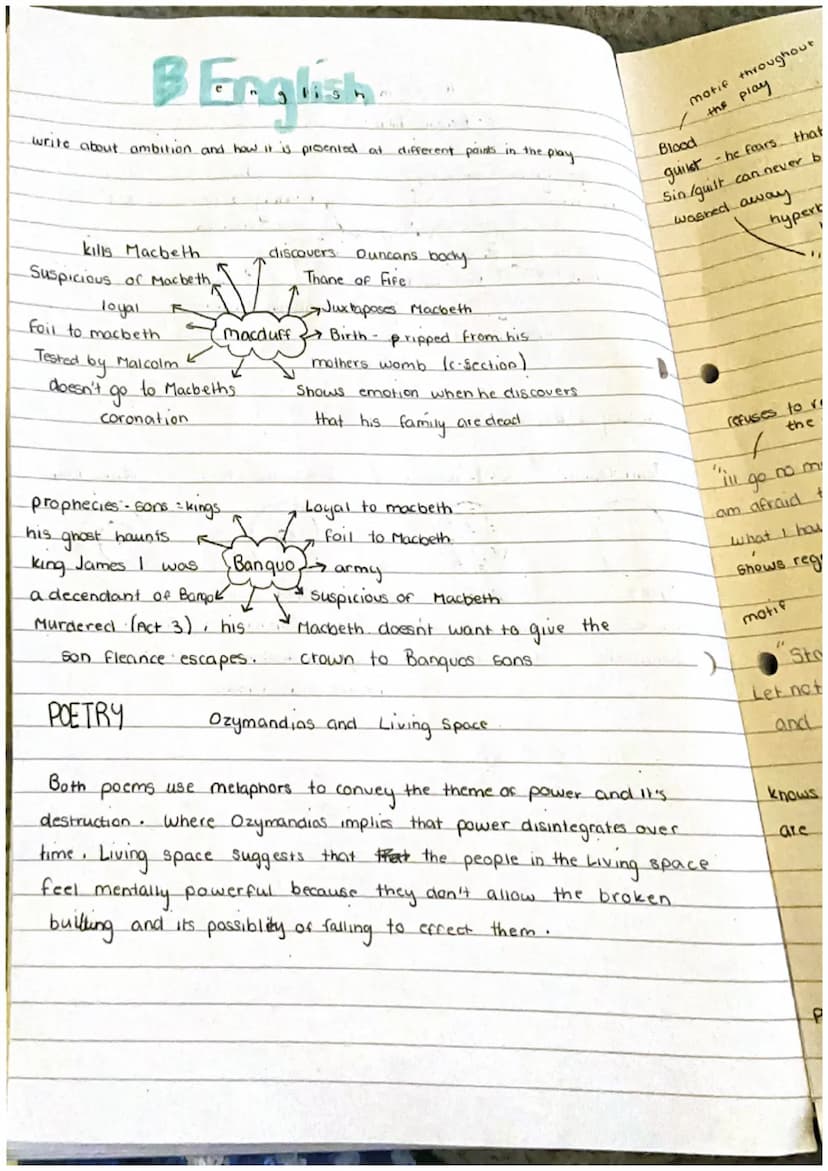 B English
English
write about ambition and how it is presented at different points in the play
kills Macbeth
discovers Duncans body
Suspicious of Macbeth
Thane of Fife
loyal
Juxtaposes Macbeth
foil to macbeth
macduff
Birth - pripped from his
mothers womb (c-section)
Tested by Malcolm
doesn't go to Macbeths
coronation
Shows emotion when he discovers
that his family are dead
prophecies - sons = kings
Loyal to macbeth
his ghost haunts
foil to Macbeth
King James I was
Banquo
army
a decendant of Banqo
Suspicious of Macbeth
Murdered (Act 3), his
son fleance escapes.
Macbeth doesn't want to give the
crown to Banquos sons
POETRY
Ozymandias and Living Space
Both poems use metaphors to convey the theme of power and it's
destruction. Where Ozymandias implies that power disintegrates over
time, Living space suggests that that the people in the Living space
feel mentally powerful because they don't allow the broken
building and its possiblity of falling to effect them.
motif throughout
the play
Blood
guilt - he fears that
Sin/guilt can never b
washed away
hyperb
refuses to r
the
"ill go no m
am afraid t
what I ha
shows reg
motif
"Sta
Let not
and
knows
are
P